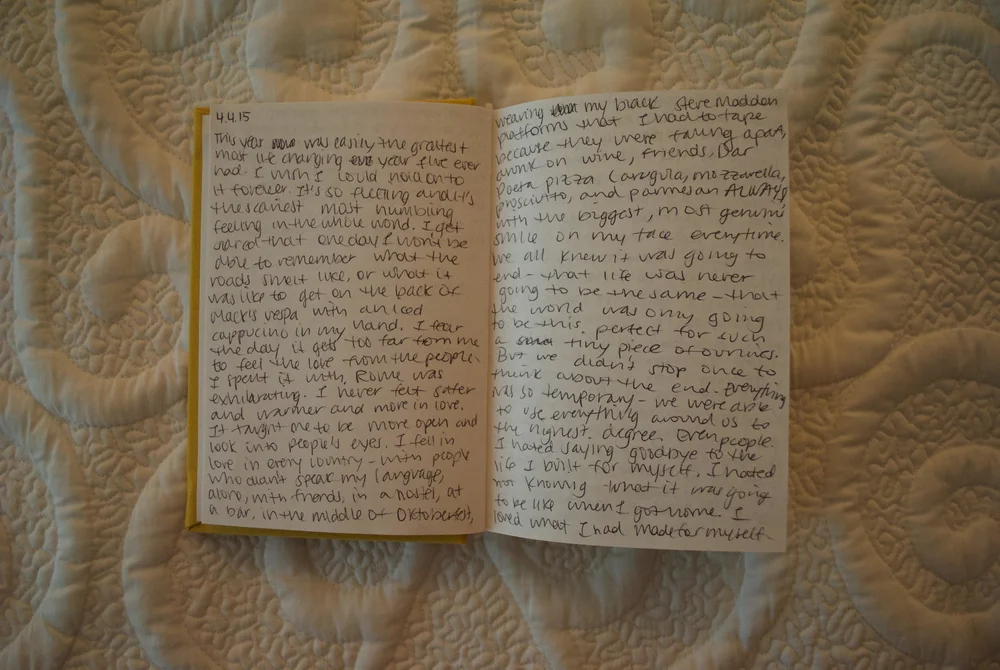 4.4.15
This year was easily the greatest
most life changing year I've ever
had. I wish I could hold on to
it forever. It's so fleeting and it's
the scariest most humbling
feeling in the whole world. I get
scared that one day I wont be
able to remember what the
roads smelt like, or what it
was like to get on the back of
Mack's vespa with an iced
cappucino in my hand. I fear
the day it gets too far from me
to feel the love from the people
I spent it with. Rome was
exhilarating. I never felt safer
and warmer and more in love.
It taught me to be more open and
look into people's eyes. I fell in
love in every country - with people
who didn't speak my language,
alone, with friends, in a hostel, at
a bar, in the middle of Oktoberfest,
wearing my black Steve Madden
platforms that I had to tape
because they were falling apart,
drunk on wine, friends, Dar
Poeta pizza (arugula, mozzarella,
prosciutto, and parmesan ALWAYS)
with the biggest, most genuine
smile on my face everytime.
We all knew it was going to
end - that life was never
going to be the same - that
the world was only going
to be this perfect for such
a tiny piece of ourlives.
But we didn't stop once to
think about the end. Everything
was so temporary - we were able
to use everything around us to
the highest degree. Even people.
I hated saying goodbye to the
life I built for myself. I hated
not knowing what it was going
to be like when I got home. I
loved what I had made for myself